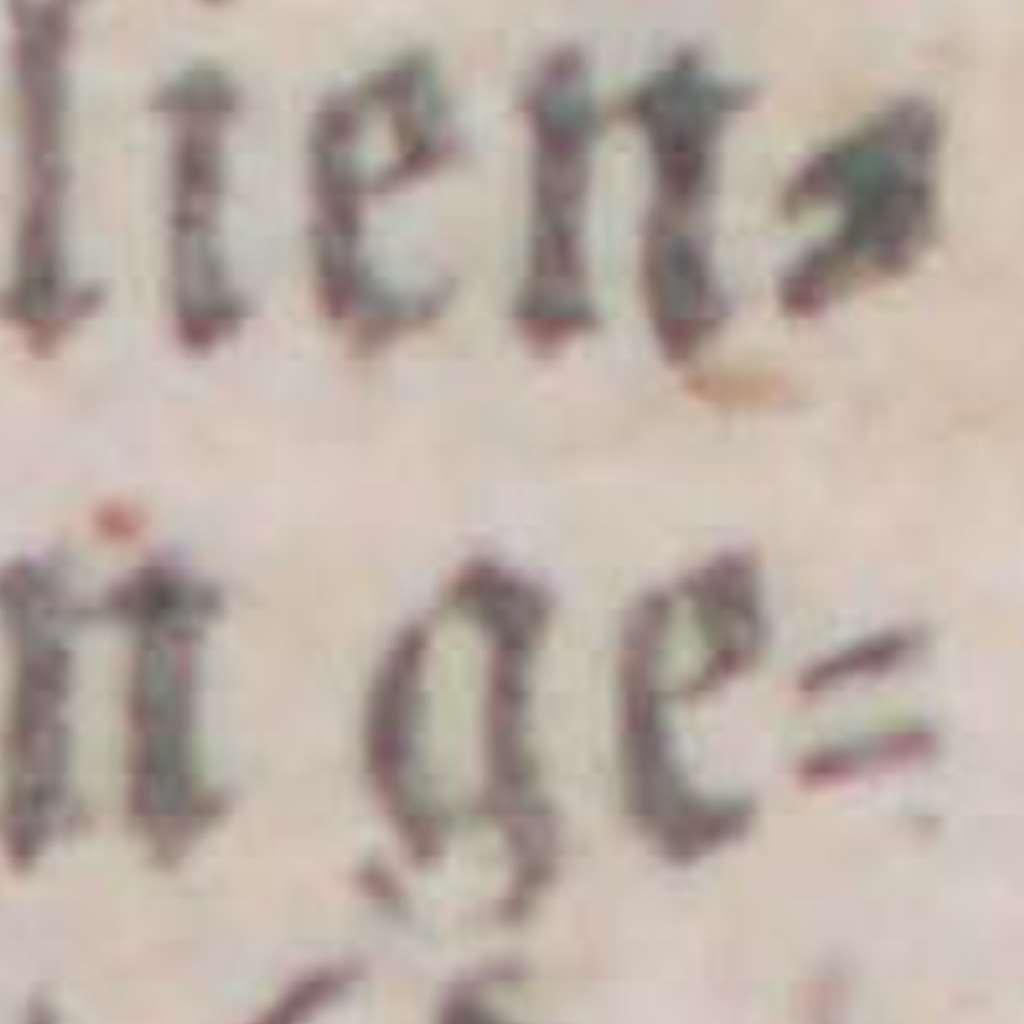 lien=
n ge=